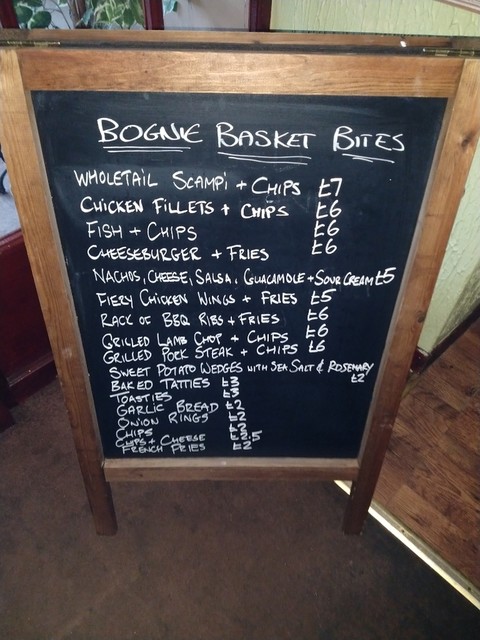 BOGNIE BASKET BITES
WHOLETAIL SCAMPI + CHIPS £7
CHICKEN FILLETS + CHIPS £6
FISH + CHIPS £6
CHEESEBURGER + FRIES £6
NACHOS, CHEESE, SALSA, GUACAMOLE + SOUR CREAM £5
FIERY CHICKEN WINGS + FRIES £5
RACK OF BBQ RIBS + FRIES £6
GRILLED LAMB CHOP + CHIPS £6
GRILLED PORK STEAK + CHIPS £6
SWEET POTATO WEDGES WITH SEA SALT & ROSEMARY £2
BAKED TATTIES £3
TOASTIES £3
GARLIC BREAD £2
ONION RINGS £2
CHIPS £2
CHIPS + CHEESE £2.5
FRENCH FRIES £2